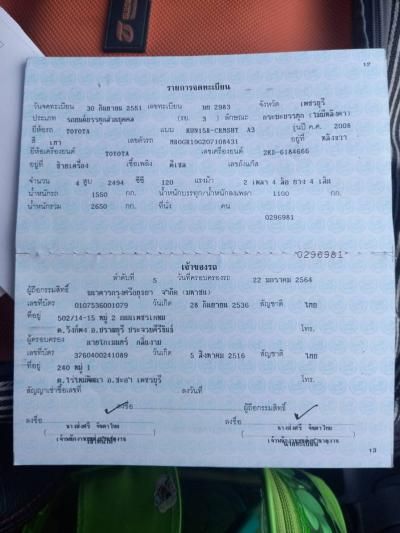 12
รายการจดทะเบียน
วันจดทะเบียน 30 กันยายน 2551 เลขทะเบียน บย 2983 จังหวัด เพชรบุรี
ประเภท รถยนต์บรรทุกส่วนบุคคล (รย. 3 ) ลักษณะ กระบะบรรทุก (ไม่มีหลังคา)
ยี่ห้อรถ TOYOTA แบบ KUN15R-CRMSHT A3 รุ่นปี ค.ศ. 2008
สี เทา เลขตัวรถ MR0GR190207108431 อยู่ที่
ยี่ห้อเครื่องยนต์ TOYOTA เลขเครื่องยนต์ 2KD-6184666
อยู่ที่ ซ้ายเครื่อง เชื้อเพลิง ดีเซล เลขถังแก๊ส
จำนวน 4 สูบ 2494 ซีซี 120 แรงม้า 2 เพลา 4 ล้อ ยาง 4 เส้น
น้ำหนักรถ 1550 กก. น้ำหนักบรรทุก/น้ำหนักลงเพลา 1100 กก.
น้ำหนักรวม 2650 กก. ที่นั่ง คน
0296981
0296981
เจ้าของรถ
ลำดับที่ 5 วันที่ครอบครองรถ 22 มกราคม 2564
ผู้ถือกรรมสิทธิ์ ธนาคารกรุงศรีอยุธยา จำกัด (มหาชน)
เลขที่บัตร 0107536001079 วันเกิด 28 กันยายน 2536 สัญชาติ ไทย
ที่อยู่ 502/14-15 หมู่ 2 ถนนเพชรเกษม
ต.วังก์พง อ.ปราณบุรี ประจวบคีรีขันธ์ โทร.
ผู้ครอบครอง
เลขที่บัตร 3760400241089 วันเกิด 5 สิงหาคม 2516 สัญชาติ ไทย
ที่อยู่ 240 หมู่ 1
ต.ไร่ใหม่พัฒนา อ.ชะอำ เพชรบุรี โทร.
สัญญาเช่าซื้อเลขที่ ลงวันที่
ลงชื่อ ผู้ถือกรรมสิทธิ์
ลงชื่อ ลงชื่อ
13